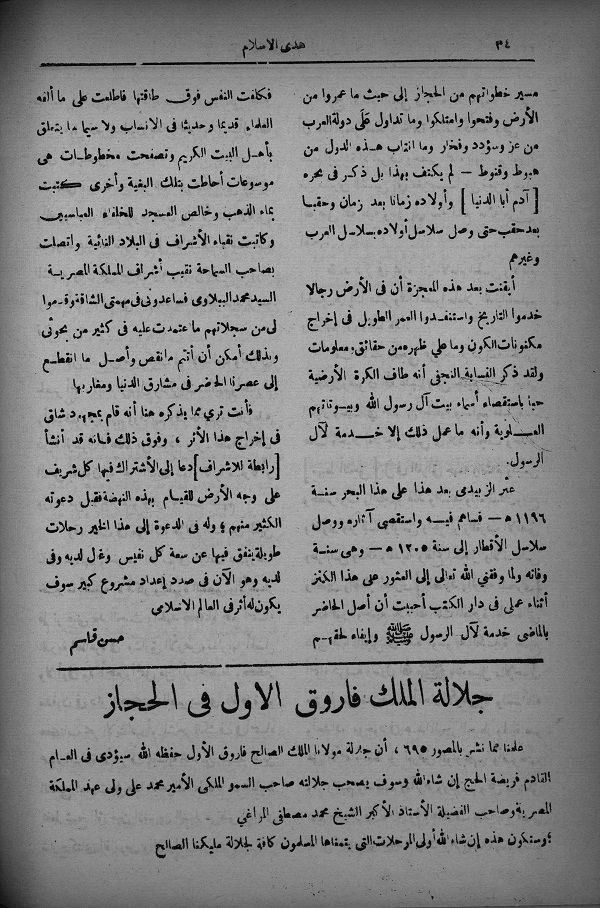 ٣٤
هدى الاسلام
مسير خطواتهم من الحجاز إلى حيث ما عمروا من
الأرض وفتحوا وامتلكوا وما تداول على دولة العرب
من عز وسؤدد وفخار وما انتاب هذه الدول من
هبوط وقنوط — لم يكتف بهذا بل ذكر فى بحره
[ آدم أبا الدنيا ] وأولاده زمانا بعد زمان وحقبا
بعد حقب حتى وصل سلاسل أولاده بسلاسل العرب
وغيرهم
أيقنت بعد هذه المعجزة أن فى الأرض رجالا
خدموا التاريخ واستنفدوا العمر الطويل فى إخراج
مكنونات الكون وما على ظهره من حقائق ومعلومات
ولقد ذكر النسابة النجفى أنه طاف الكرة الأرضية
حبا باستقصاء أسماء بيت آل رسول الله وبيوتاتهم
العلوية وأنه ما عمل ذلك إلا خدمة لآل
الرسول.
عثر الزبيدى بعد هذا على هذا البحر سنة
١١٩٦ ه — فساهم فيه واستقصى آثاره ووصل
سلاسل الأقطار إلى سنة ١٢٠٥ ه — وهى سنة
وفاته ولما وفقنى الله تعالى إلى العثور على هذا الكنز
أثناء عملى فى دار الكتب أحببت أن أصل الحاضر
بالماضى خدمة لآل الرسول ﷺ وإيفاء لحقهم
فكلفت النفس فوق طاقتها فاطلعت على ما ألفه
العلماء قديما وحديثا فى الأنساب ولا سيما ما يتعلق
بأهل البيت الكريم وتصفحت مخطوطات هى
موسوعات أحاطت بتلك البغية وأخرى كتبت
بماء الذهب وخالص العسجد للخلفاء العباسيين
وكاتبت نقباء الأشراف فى البلاد النائية واتصلت
بصاحب السماحة نقيب أشراف المملكة المصرية
السيد محمد الببلاوى فساعدونى فى مهمتى الشاقة وقدموا
لى من سجلاتهم ما عتمدت عليه فى كثير من بحوثى
وبذلك أمكن أن أتمم ما نقص وأصل ما انقطع
إلى عصرنا الحاضر فى مشارق الدنيا ومغاربها
فأنت ترى مما يذكره هنا أنه قام بمجهود شاق
فى إخراج هذا الأثر ، وفوق ذلك فانه قد أنشأ
[ رابطة للاشراف ] دعا إلى الأشتراك فيها كل شريف
على وجه الأرض للقيام بهذه النهضة فقبل دعوته
الكثير منهم وله فى الدعوة إلى هذا الخير رحلات
طويلة ينفق فيها عن سعة كل نفيس وغال لديه وفى
لديه وهو الآن فى صدد إعداد مشروع كبير سوف
يكون له أثر فى العالم الاسلامى
حسن قاسم
جلالة الملك فاروق الاول فى الحجاز
علمنا مما نشر بالمصور ٦٩٥ ، أن جلالة مولانا الملك الصالح فاروق الأول حفظه الله سيؤدى فى العام
القادم فريضة الحج إن شاء الله وسوف يصحب جلالته صاحب السمو الملكى الأمير محمد على ولى عهد المملكة
المصرية وصاحب الفضيلة الأستاذ الأكبر الشيخ محمد مصطفى المراغى
وستكون هذه إن شاء الله أولى الرحلات التى يتمناها المسلمون كافة لجلالة مليكنا الصالح